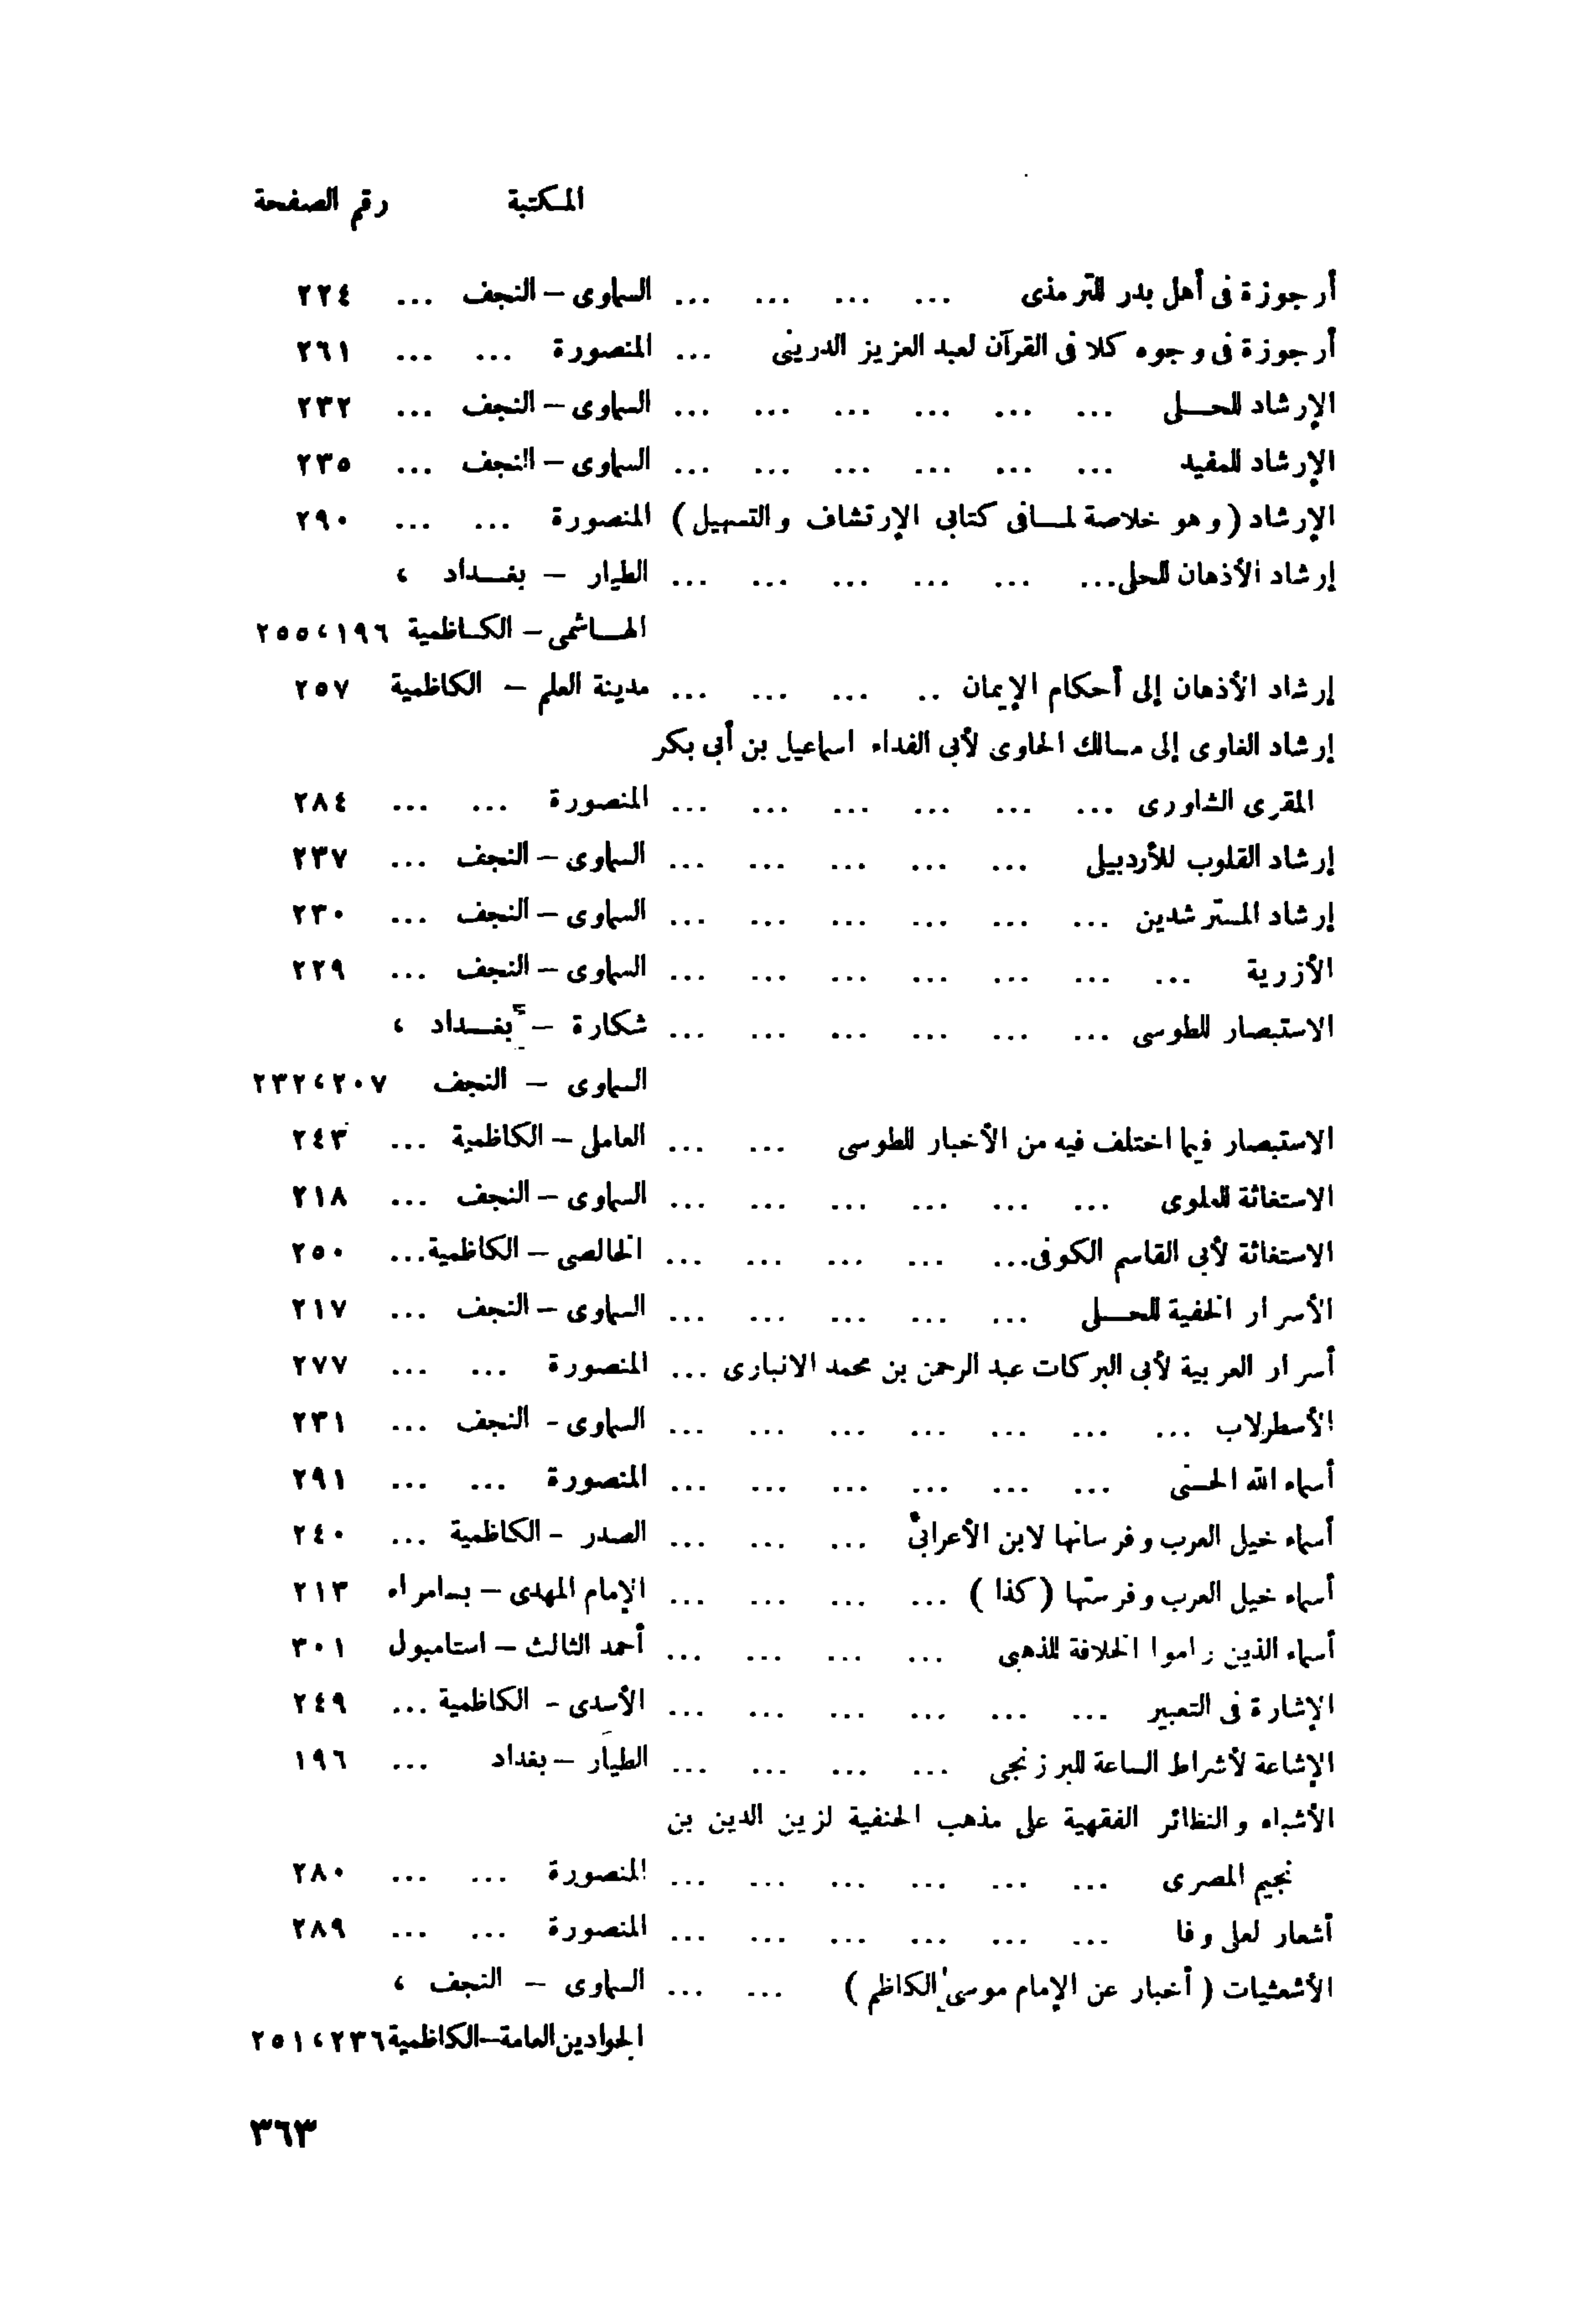 المكتبة رقم الصفحة
أرجوزة فى أهل بدر للترمذى ... ... ... ... السماوى – النجف ... ٢٢٤
أرجوزة فى وجوه كلا فى القرآن لعبد العزيز الدرينى ... المنصورة ... ... ٢٦١
الإرشاد للحلى ... ... ... ... ... ... السماوى – النجف ... ٢٣٢
الإرشاد للمفيد ... ... ... ... ... ... السماوى – النجف ... ٢٣٥
الإرشاد (وهو خلاصة لما فى كتابى الإرتشاف والتسهيل) المنصورة ... ... ٢٩٠
إرشاد الأذهان للحلى... ... ... ... ... ... الطيار – بغداد ،
الهاشمى – الكاظمية ١٩٦ ، ٢٥٥
إرشاد الأذهان إلى أحكام الإيمان .. ... ... ... مدينة العلم – الكاظمية ٢٥٧
إرشاد الغاوى إلى مسالك الحاوى لأبى الفداء اسماعيل بن أبى بكر
المقرى الشاورى ... ... ... ... ... ... المنصورة ... ... ٢٨٤
إرشاد القلوب للأردبيلى ... ... ... ... ... السماوى – النجف ... ٢٣٧
إرشاد المسترشدين ... ... ... ... ... ... السماوى – النجف ... ٢٣٠
الأزرية ... ... ... ... ... ... ... السماوى – النجف ... ٢٢٩
الاستبصار للطوسى ... ... ... ... ... ... شكارة – بغداد ،
السماوى – النجف ٢٠٧ ، ٢٣٢
الاستبصار فيما اختلف فيه من الأخبار للطوسى ... ... العاملى – الكاظمية ... ٢٤٣
الاستغاثة للعلوى ... ... ... ... ... ... السماوى – النجف ... ٢١٨
الاستغاثة لأبى القاسم الكوفى... ... ... ... ... الخالصى – الكاظمية... ٢٥٠
الأسرار الخفية للحلى ... ... ... ... ... السماوى – النجف ... ٢١٧
أسرار العربية لأبى البركات عبد الرحمن بن محمد الانبارى ... المنصورة ... ... ٢٧٧
الأسطرلاب ... ... ... ... ... ... ... السماوى - النجف ... ٢٣١
أسماء الله الحسنى ... ... ... ... ... ... المنصورة ... ... ٢٩١
أسماء خيل العرب وفرسانها لابن الأعرابى ... ... ... الصدر - الكاظمية ... ٢٤٠
أسماء خيل العرب وفرستها (كذا) ... ... ... ... الإمام المهدى – بسامراء ٢١٣
أسماء الذين راموا الخلافة للذهبى ... ... ... ... أحمد الثالث – استامبول ٣٠١
الإشارة فى التعبير ... ... ... ... ... ... الأسدى - الكاظمية ... ٢٤٩
الإشاعة لأشراط الساعة للبرزنجى ... ... ... ... الطيار – بغداد ... ١٩٦
الأشباه والنظائر الفقهية على مذهب الحنفية لزين الدين بن
نجيم المصرى ... ... ... ... ... ... المنصورة ... ... ٢٨٠
أشعار لعلى وفا ... ... ... ... ... ... المنصورة ... ... ٢٨٩
الأشعثيات (أخبار عن الإمام موسى الكاظم) ... ... السماوى – النجف ،
الجوادين العامة–الكاظمية ٢٣٦ ، ٢٥١
٣٦٣